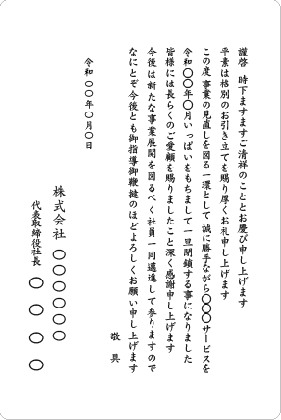 謹啓 時下ますますご清祥のこととお慶び申し上げます
平素は格別のお引き立てを賜り厚くお礼申し上げます
この度 事業の見直しを図る一環として 誠に勝手ながら〇〇〇サービスを
令和〇〇年〇月いっぱいをもちまして一旦閉鎖する事になりました
皆様には長らくのご愛顧を賜りましたこと深く感謝申し上げます
今後は新たな事業展開を図るべく社員一同邁進して参りますので
なにとぞ今後とも御指導御鞭撻のほどよろしくお願い申し上げます
敬具
令和〇〇年〇月〇日
株式会社 〇〇〇〇〇
代表取締役社長 〇〇〇〇